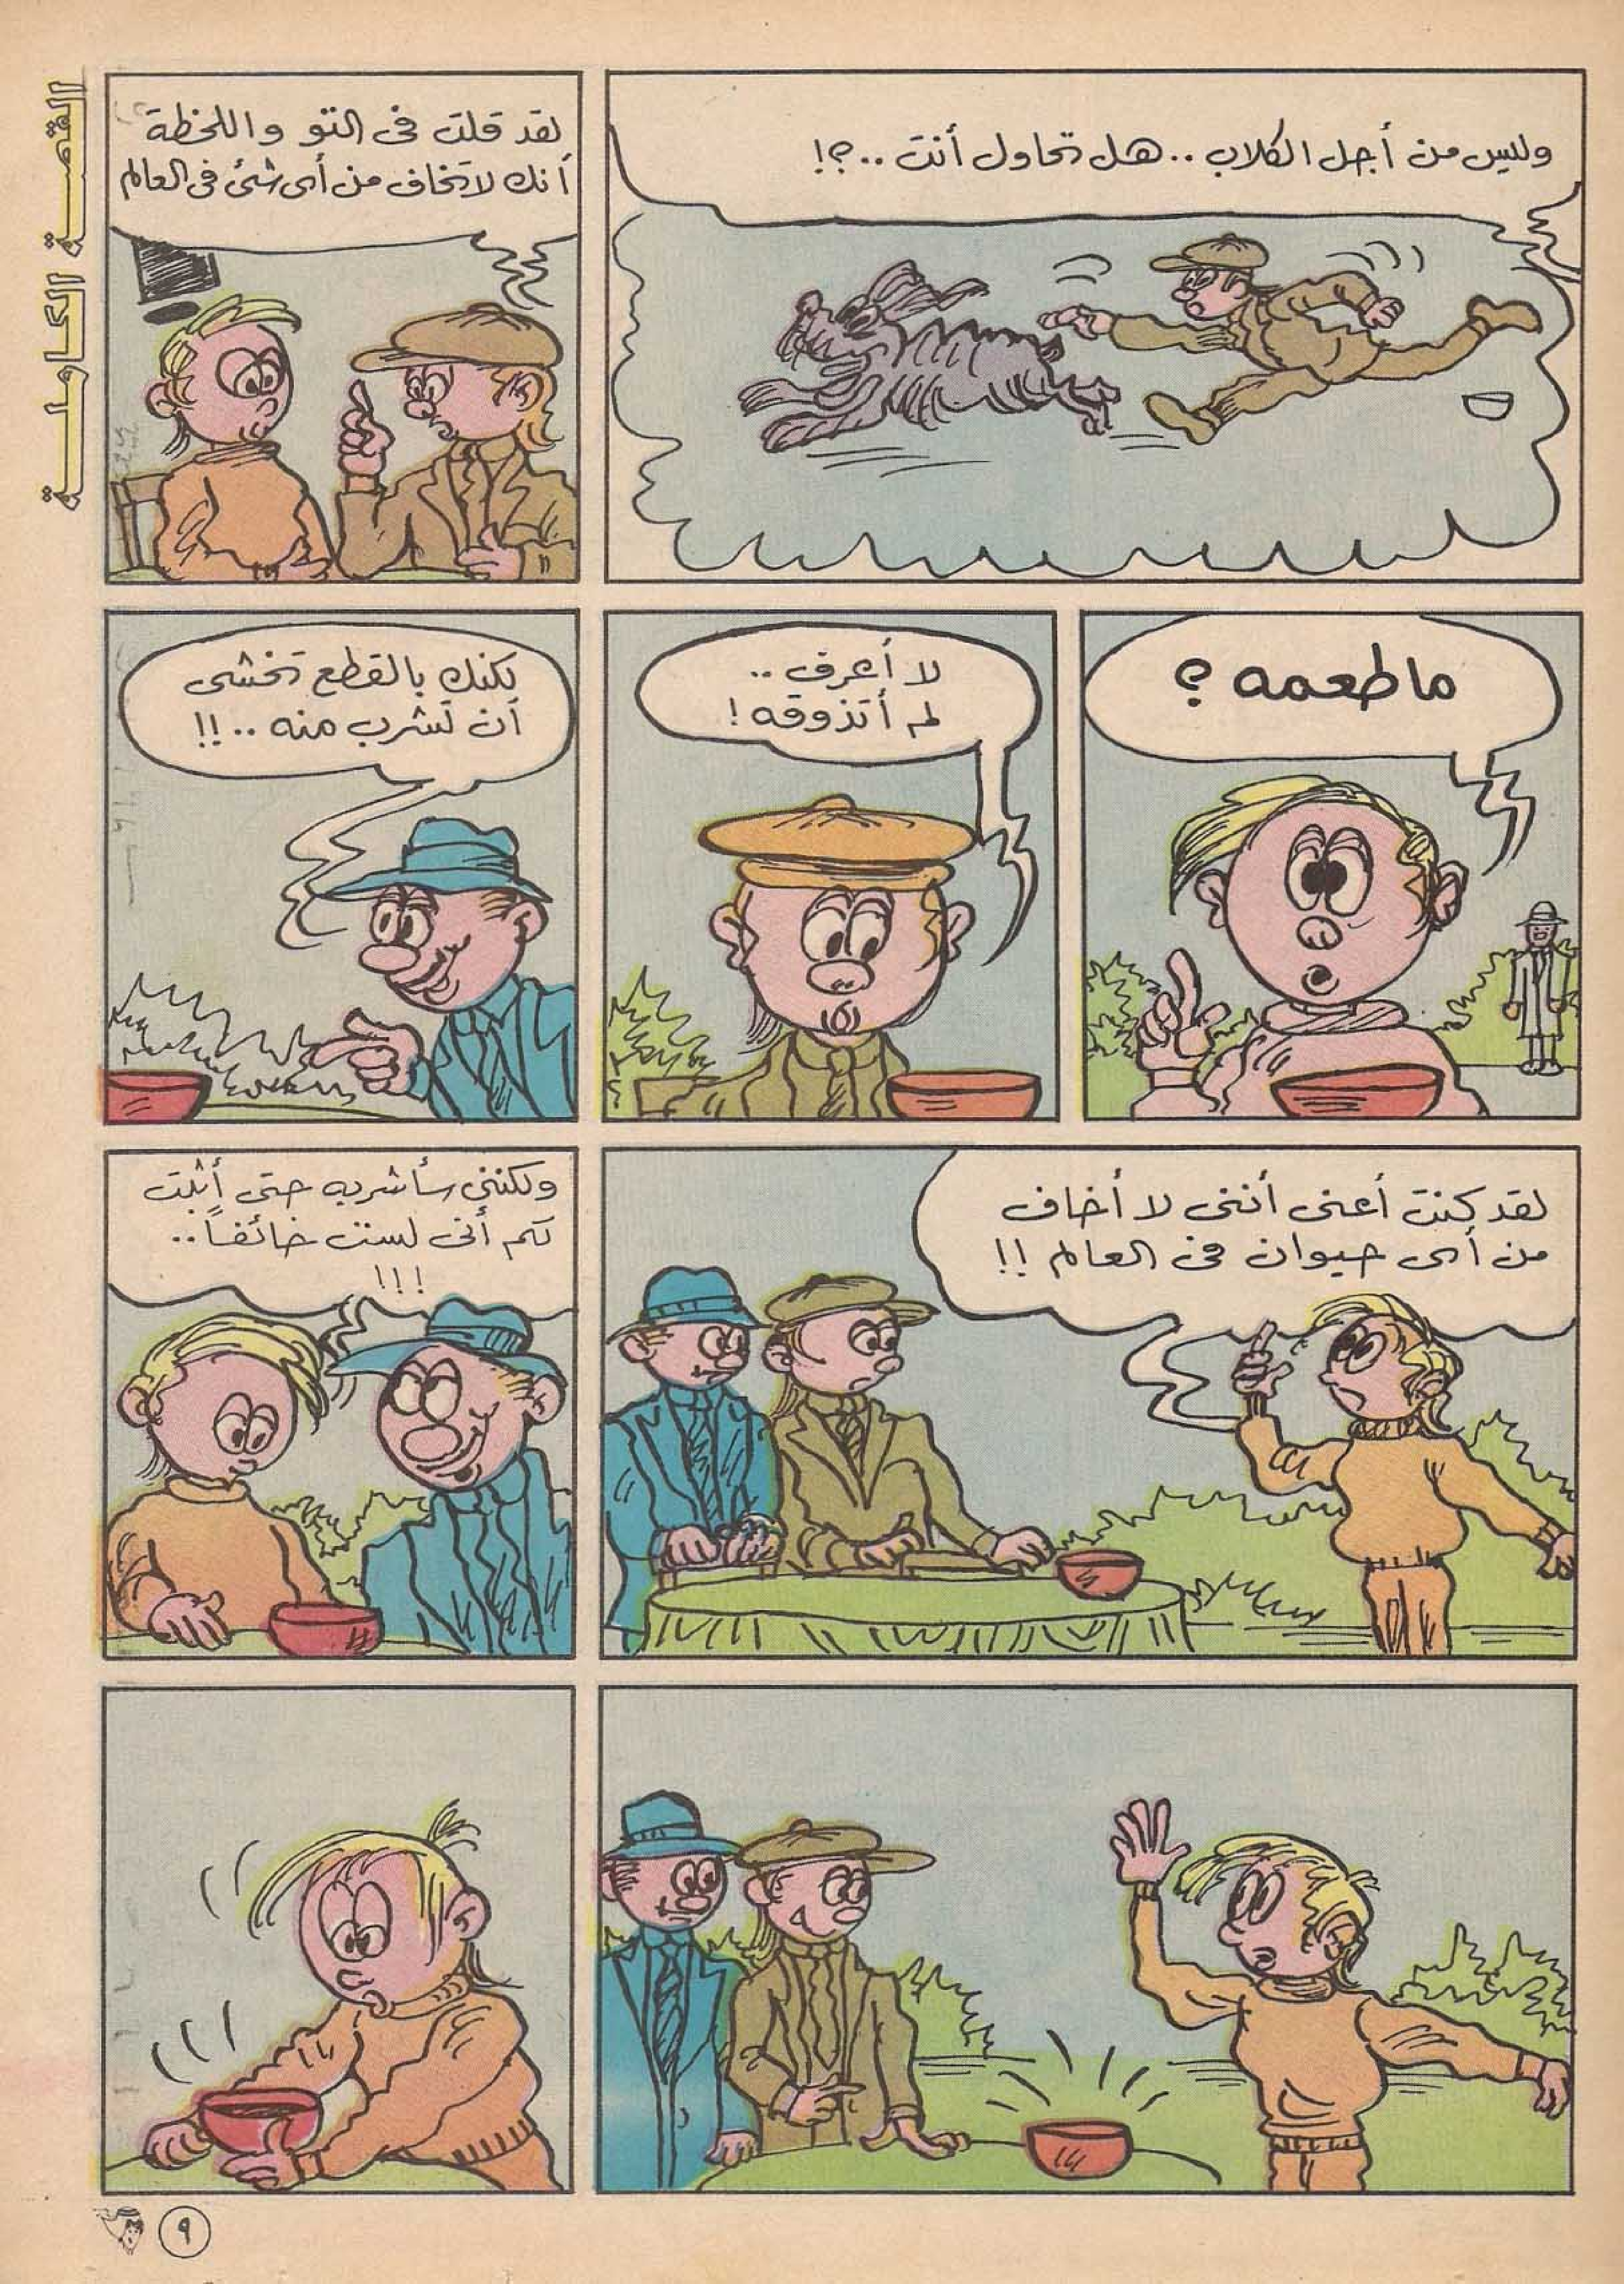 وليس من أجل الكلاب .. هل تحاول أنت ..؟!
لقد قلت فى التو واللحظة
أنك لا تخاف من أى شئ فى العالم
القصة الكاملة
ما طعمه ؟
لا أعرف ..
لم أتذوقه !
لكنك بالقطع تخشى
أن تشرب منه ..!!
لقد كنت أعنى أننى لا أخاف
من أى حيوان فى العالم !!
ولكننى سأشربه حتى أثبت
لكم أنى لست خائفاً ..
!!!
٩